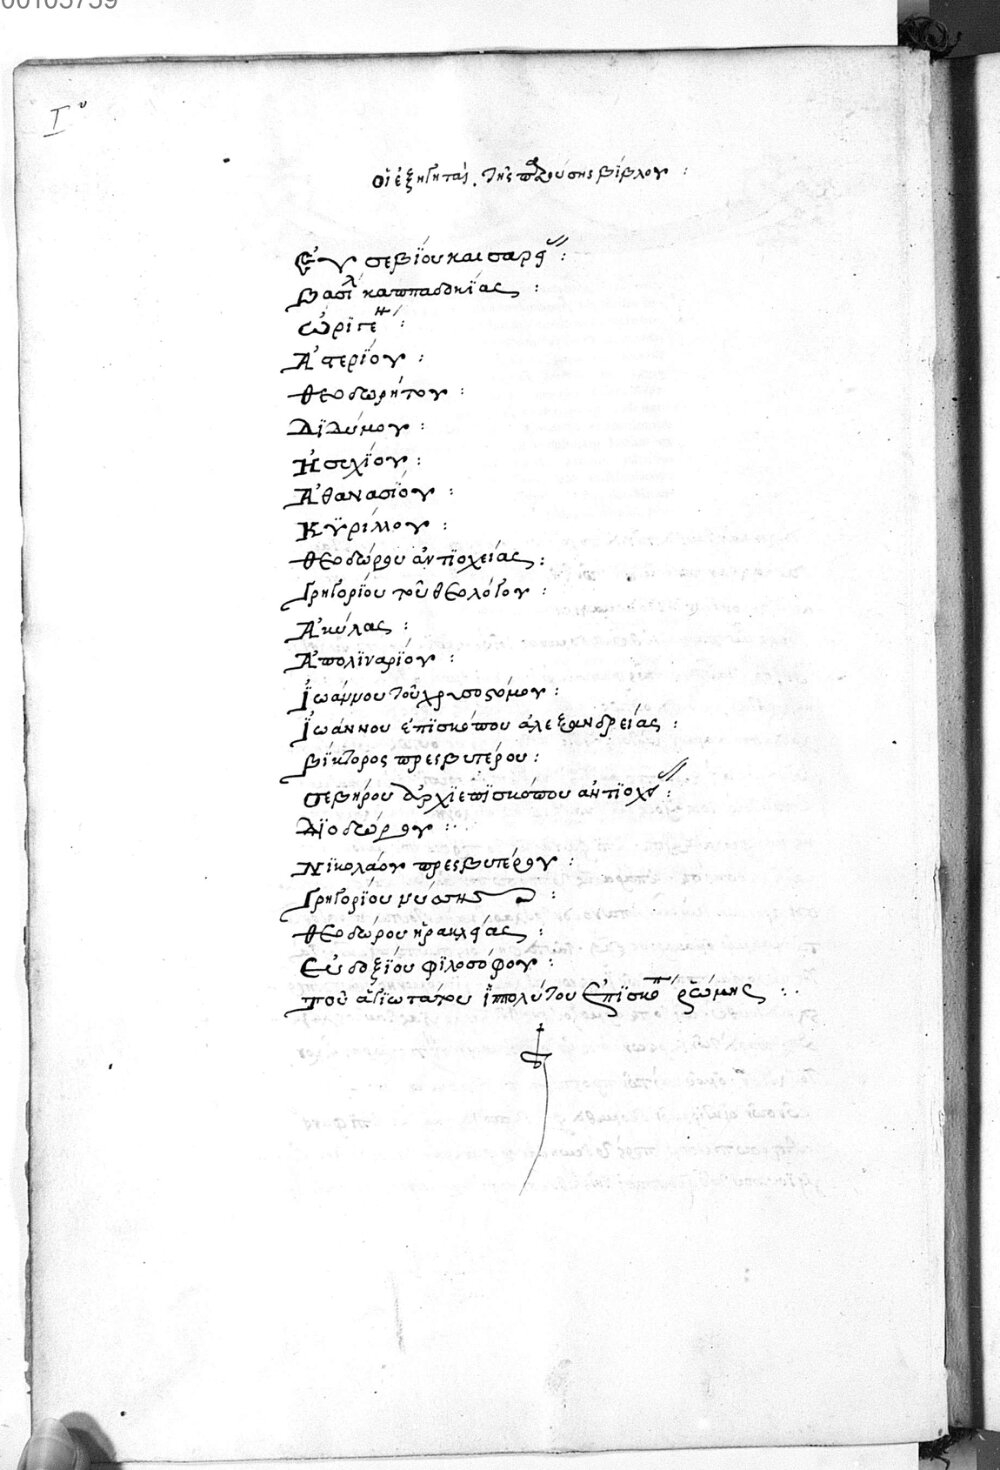 00103759
I v
οἱ ἐξηγηταὶ. τῆς παρούσης βίβλου :
Εὐσεβΐου καισαρεί :
βασιλ καππαδοκΐας :
ὠριγέν :
Ἀστερΐου :
θεοδωρήτου :
Διδύμου :
Ἡσυχΐου :
Ἀθανασΐου :
Κϋρίλλου :
θεοδώρου ἀντϊοχείας :
Γρηγορΐου τοῦ θεολόγου :
Ἀκύλας :
Ἀπολϊναρΐου :
Ἰωάννου τοῦ χρυσοστόμου :
Ἰωάννου ἐπϊσκόπου ἀλεξανδρείας :
βίκτορος πρεσβυτέρου :
σεβήρου ἀρχϊεπϊσκόπου ἀντϊοχεί :
Δϊοδώρου :
Νϊκολάου πρεσβυτέρου :
Γρηγορΐου νύσσης :
θεοδώρου ἡρακλείας :
Εὐδοξΐου φϊλοσόφου :
τοῦ ἁγϊωτάτου ἱππολύτου Ἐπϊσκόπ ῥώμης :